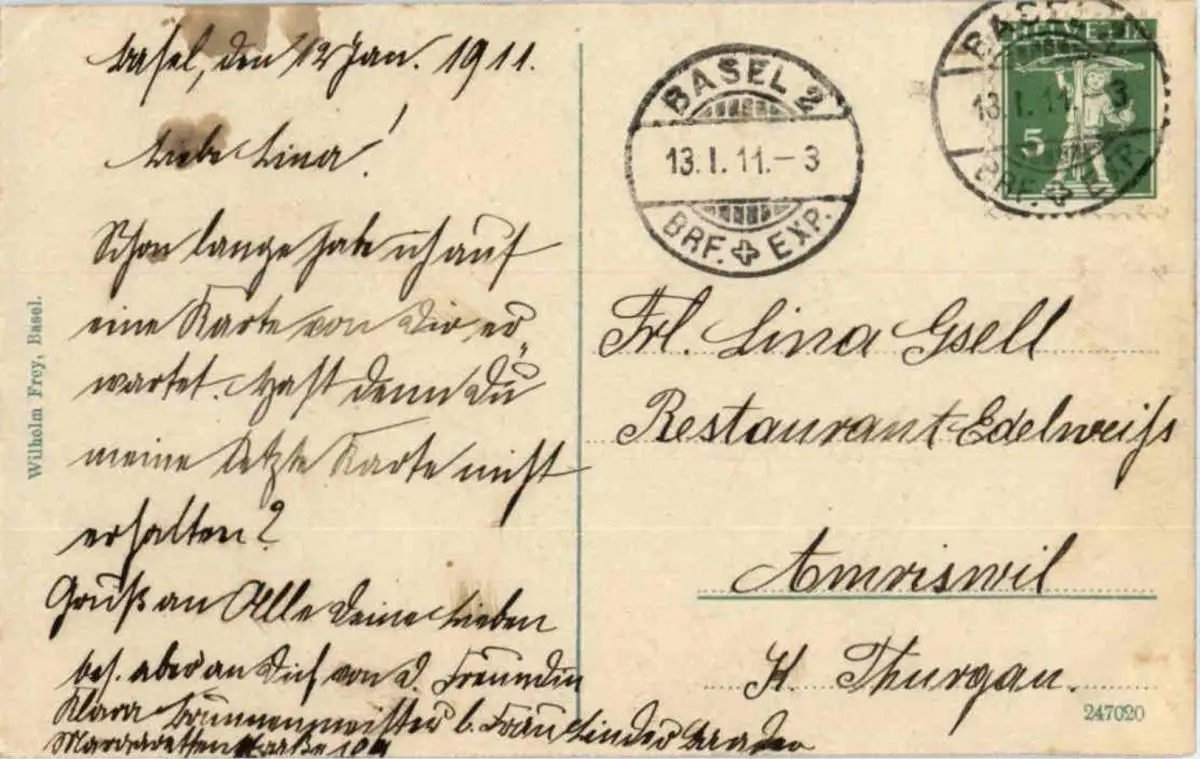 Basel, den 12 Jan. 1911.
Liebe Lina!
Schon lange habe ich auf
eine Karte von Dir er-
wartet. Hast denn Du
meine letzte Karte nicht
erhalten?
Gruß an Alle Deine Lieben
bes. aber an Dich von d. Freundin
Klara Brunnenmeister b. Frau Linder
Margarethenstraße
Wilhelm Frey, Basel.
BASEL 2
13.I.11.-3
BRF. EXP.
BASEL
HELVETIA
13.I.11. 3
5
BRF. EXP.
Frl. Lina Gsell
Restaurant Edelweiß
Amriswil
K. Thurgau.
247020